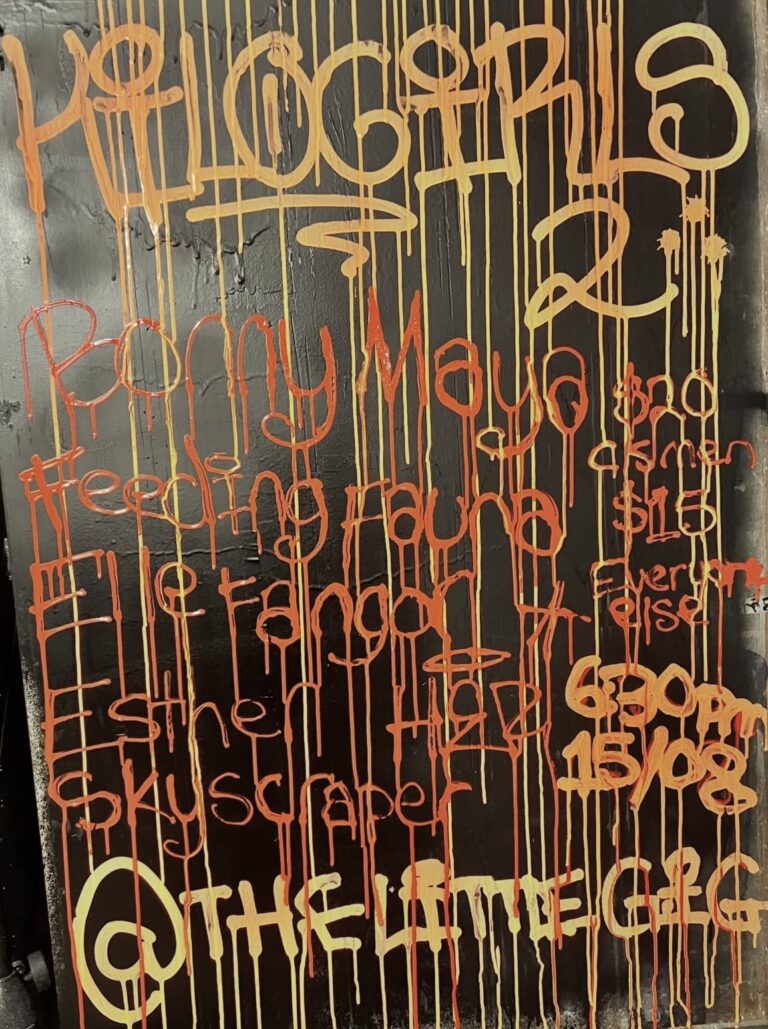 KiLOGiRLS
2
Bonny Maya
Feeding Fauna
Elle Fangor
Esther
Skyscraper
$20
cismen
$15
Everyone
else
630pm
15/08
@THE LiTTLE GiG